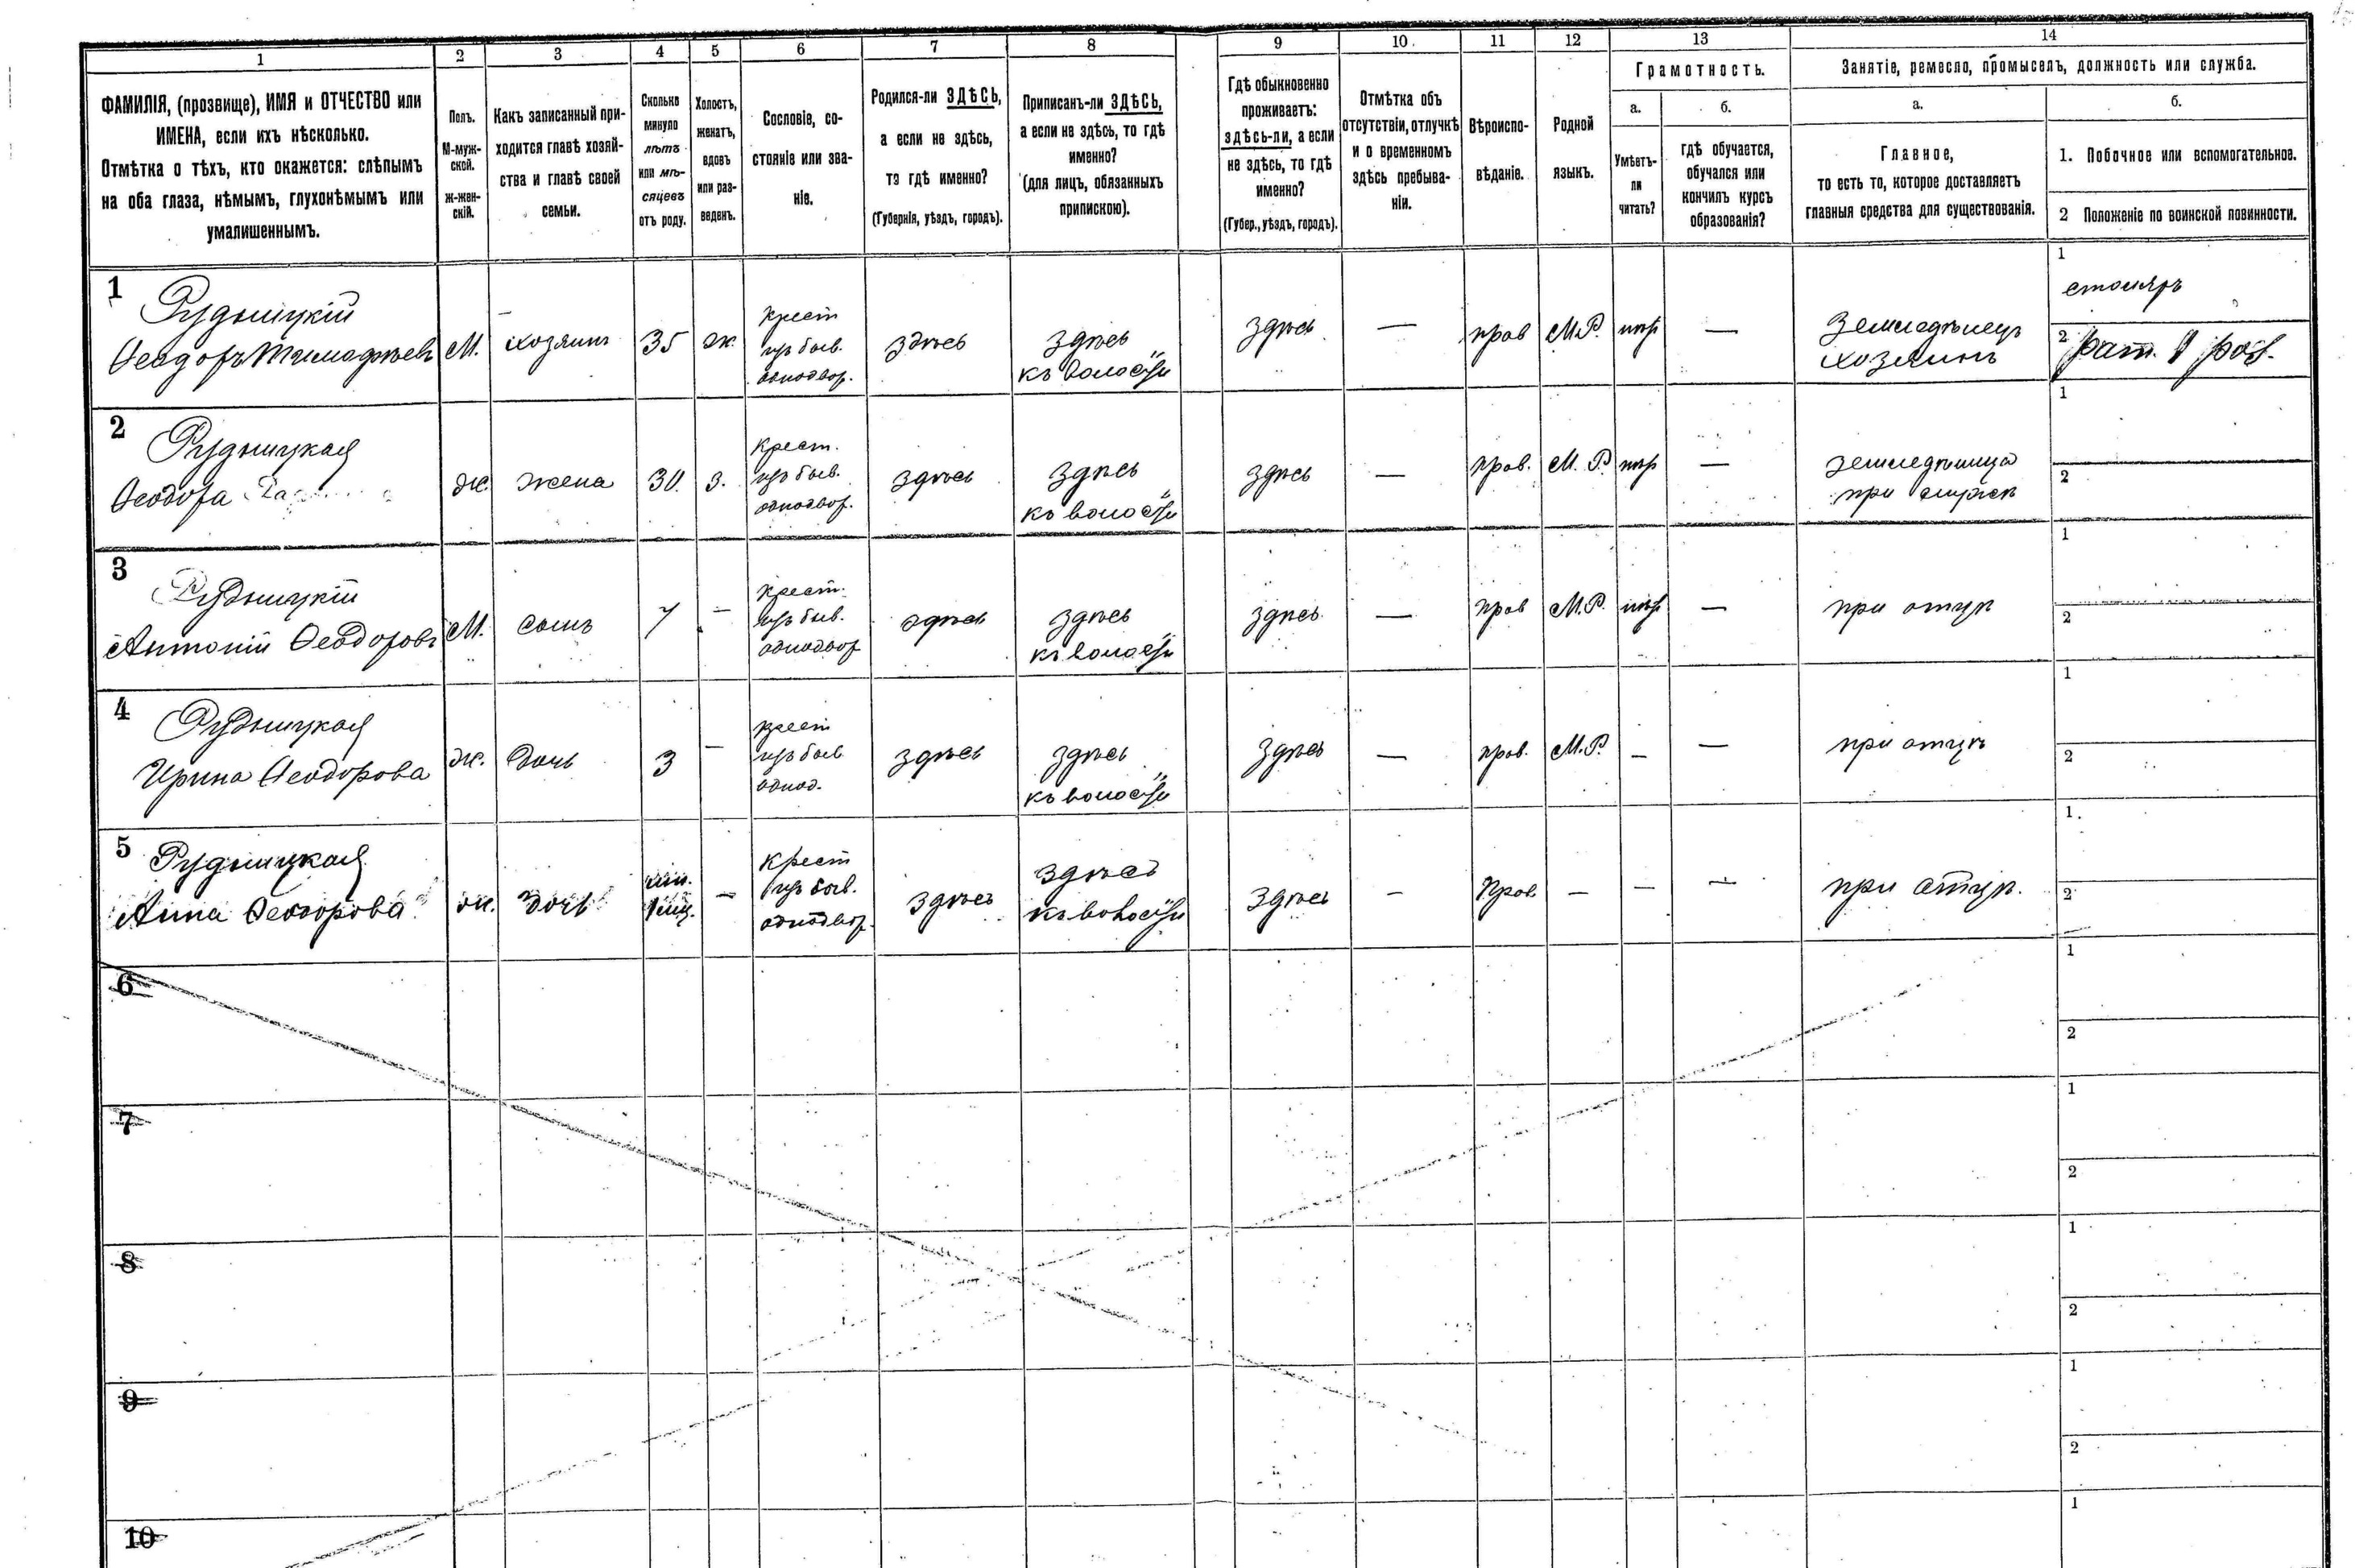 1 2 3 4 5 6 7 8 9 10 11 12 13 14
ФАМИЛІЯ, (прозвище), ИМЯ и ОТЧЕСТВО или
ИМЕНА, если ихъ нѣсколько.
Отмѣтка о тѣхъ, кто окажется: слѣпымъ
на оба глаза, нѣмымъ, глухонѣмымъ или
умалишеннымъ.
Полъ.
М-муж-
ской.
ж-жен-
скій.
Какъ записанный при-
ходится главѣ хозяй-
ства и главѣ своей
семьи.
Сколько
минуло
лѣтъ
или мѣ-
сяцевъ
отъ роду.
Холостъ,
женатъ,
вдовъ
или раз-
веденъ.
Сословіе, со-
стояніе или зва-
ніе.
Родился-ли ЗДѢСЬ,
а если не здѣсь,
то гдѣ именно?
(Губернія, уѣздъ, городъ).
Приписанъ-ли ЗДѢСЬ,
а если не здѣсь, то гдѣ
именно?
(для лицъ, обязанныхъ
припискою).
Гдѣ обыкновенно
проживаетъ:
здѣсь-ли, а если
не здѣсь, то гдѣ
именно?
(Губер., уѣздъ, городъ).
Отмѣтка объ
отсутствіи, отлучкѣ
и о временномъ
здѣсь пребыва-
ніи.
Вѣроиспо-
вѣданіе.
Родной
языкъ.
Грамотность.
а.
Умѣетъ-
ли
читать?
б.
гдѣ обучается,
обучался или
кончилъ курсъ
образованія?
Занятіе, ремесло, промыселъ, должность или служба.
а.
Главное,
то есть то, которое доставляетъ
главныя средства для существованія.
б.
1. Побочное или вспомогательное.
2 Положеніе по воинской повинности.
1
Рудницкій
Ѳеодоръ Тимофѣевъ
М.
хозяинъ
35
ж.
крест
изъ быв.
однодвор.
здѣсь
здѣсь
къ волости
здѣсь
—
прав
М.Р.
нѣтъ
—
Земледѣлецъ
хозяинъ
1
столяръ
2
рат. 1 раз.
2
Рудницкая
Ѳеодора
ж.
жена
30.
з.
крест.
изъ быв.
однодвор.
здѣсь
здѣсь
къ волости
здѣсь
—
прав.
М. Р.
нѣтъ
—
земледѣлица
при мужѣ
1
2
3
Рудницкій
Антоній Ѳеодоровъ
М.
сынъ
7
—
крест.
изъ быв.
однодвор
здѣсь
здѣсь
къ волости
здѣсь
—
прав
М.Р.
нѣтъ
—
при отцѣ
1
2
4
Рудницкая
Ирина Ѳеодорова
ж.
дочь
3
—
крест
изъ быв
однод.
здѣсь
здѣсь
къ волости
здѣсь
—
прав.
М.Р.
—
—
при отцѣ
1
2
5
Рудницкая
Анна Ѳеодорова
ж.
дочь
—
крест
изъ быв.
однодвор.
здѣсь
здѣсь
къ волости
здѣсь
—
прав.
—
—
—
при отцѣ.
1.
2
6
1
2
7
1
2
8
1
2
9
1
2
10
1